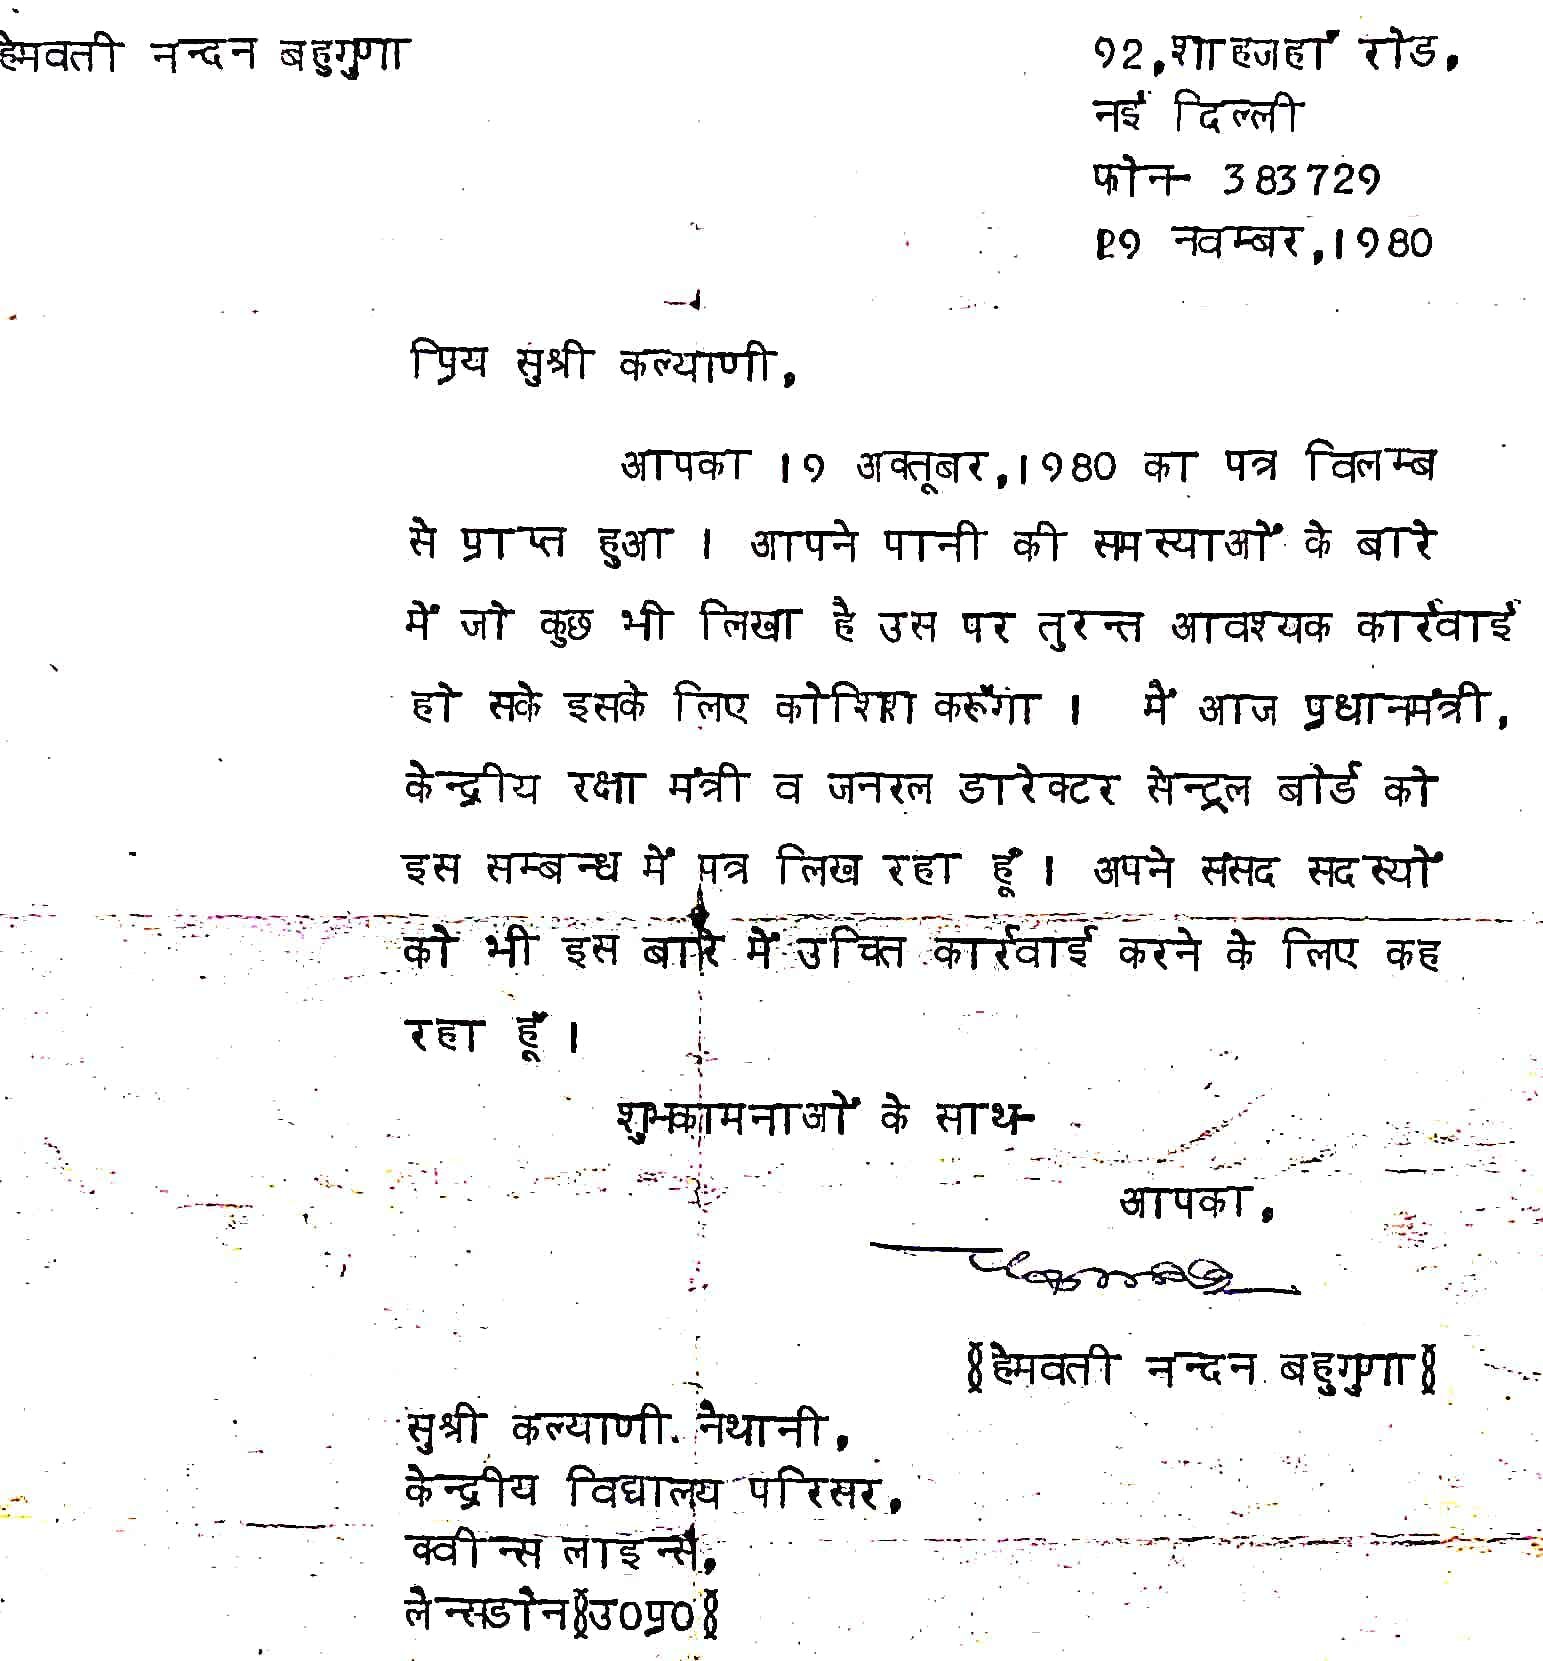 हेमवती नन्दन बहुगुणा
92,शाहजहां रोड,
नई दिल्ली
फोन- 383729
नवम्बर,1980
प्रिय सुश्री कल्याणी,
आपका 19 अक्तूबर,1980 का पत्र विलम्ब
से प्राप्त हुआ । आपने पानी की समस्याओं के बारे
में जो कुछ भी लिखा है उस पर तुरन्त आवश्यक कार्रवाई
हो सके इसके लिए कोशिश करूँगा । मैं आज प्रधानमंत्री,
केन्द्रीय रक्षा मंत्री व जनरल डारेक्टर सेन्ट्रल बोर्ड को
इस सम्बन्ध में पत्र लिख रहा हूँ । अपने संसद सदस्यों
को भी इस बारे में उचित कार्रवाई करने के लिए कह
रहा हूँ ।
शुभकामनाओं के साथ-
आपका,
(हेमवती नन्दन बहुगुणा)
सुश्री कल्याणी नेथानी,
केन्द्रीय विद्यालय परिसर,
क्वीन्स लाइन्स,
लेन्सडोन(उ0प्र0)